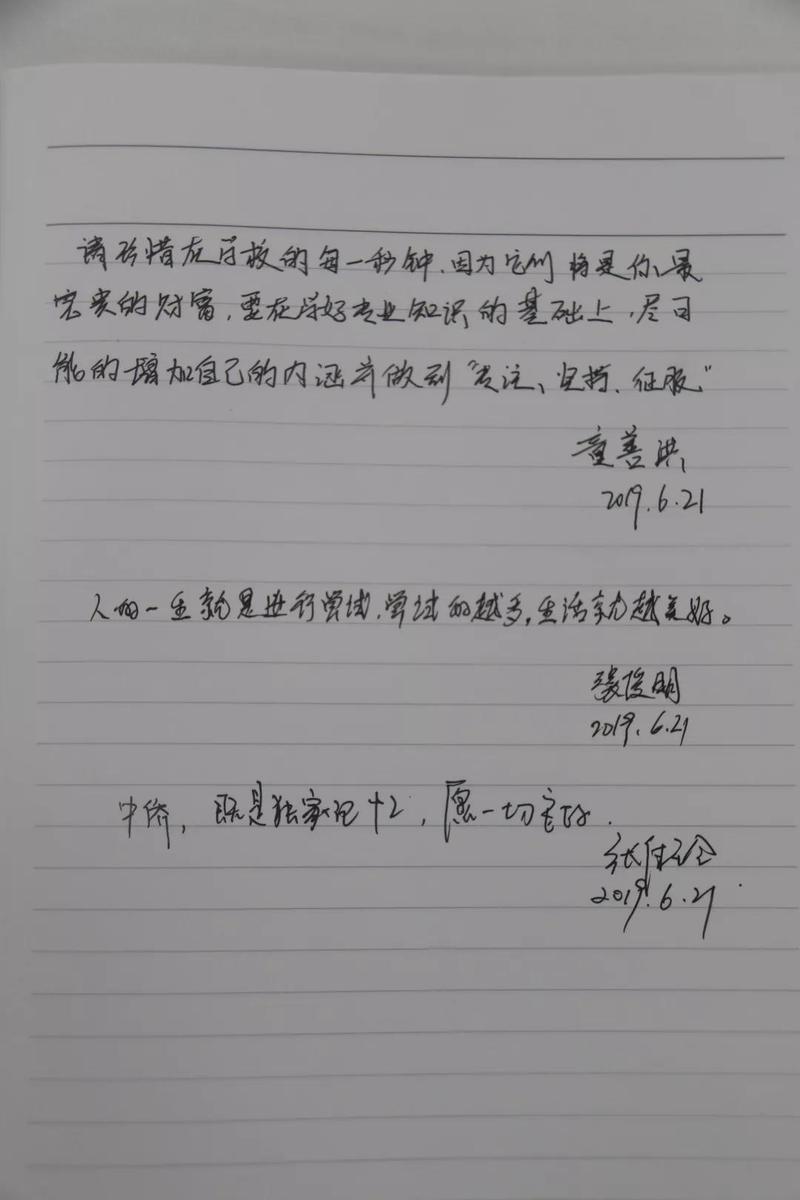 请珍惜在学校的每一秒钟.因为它们将是你最
宝贵的财富,要在学好专业知识的基础上,尽可
能的增加自己的内涵并做到“专注、坚持、征服”
童善洪
2019.6.21
人的一生就是进行尝试,尝试的越多,生活就越美好。
张俊明
2019.6.21
中侨,既是独家记忆,愿一切安好.
张
2019.6.21